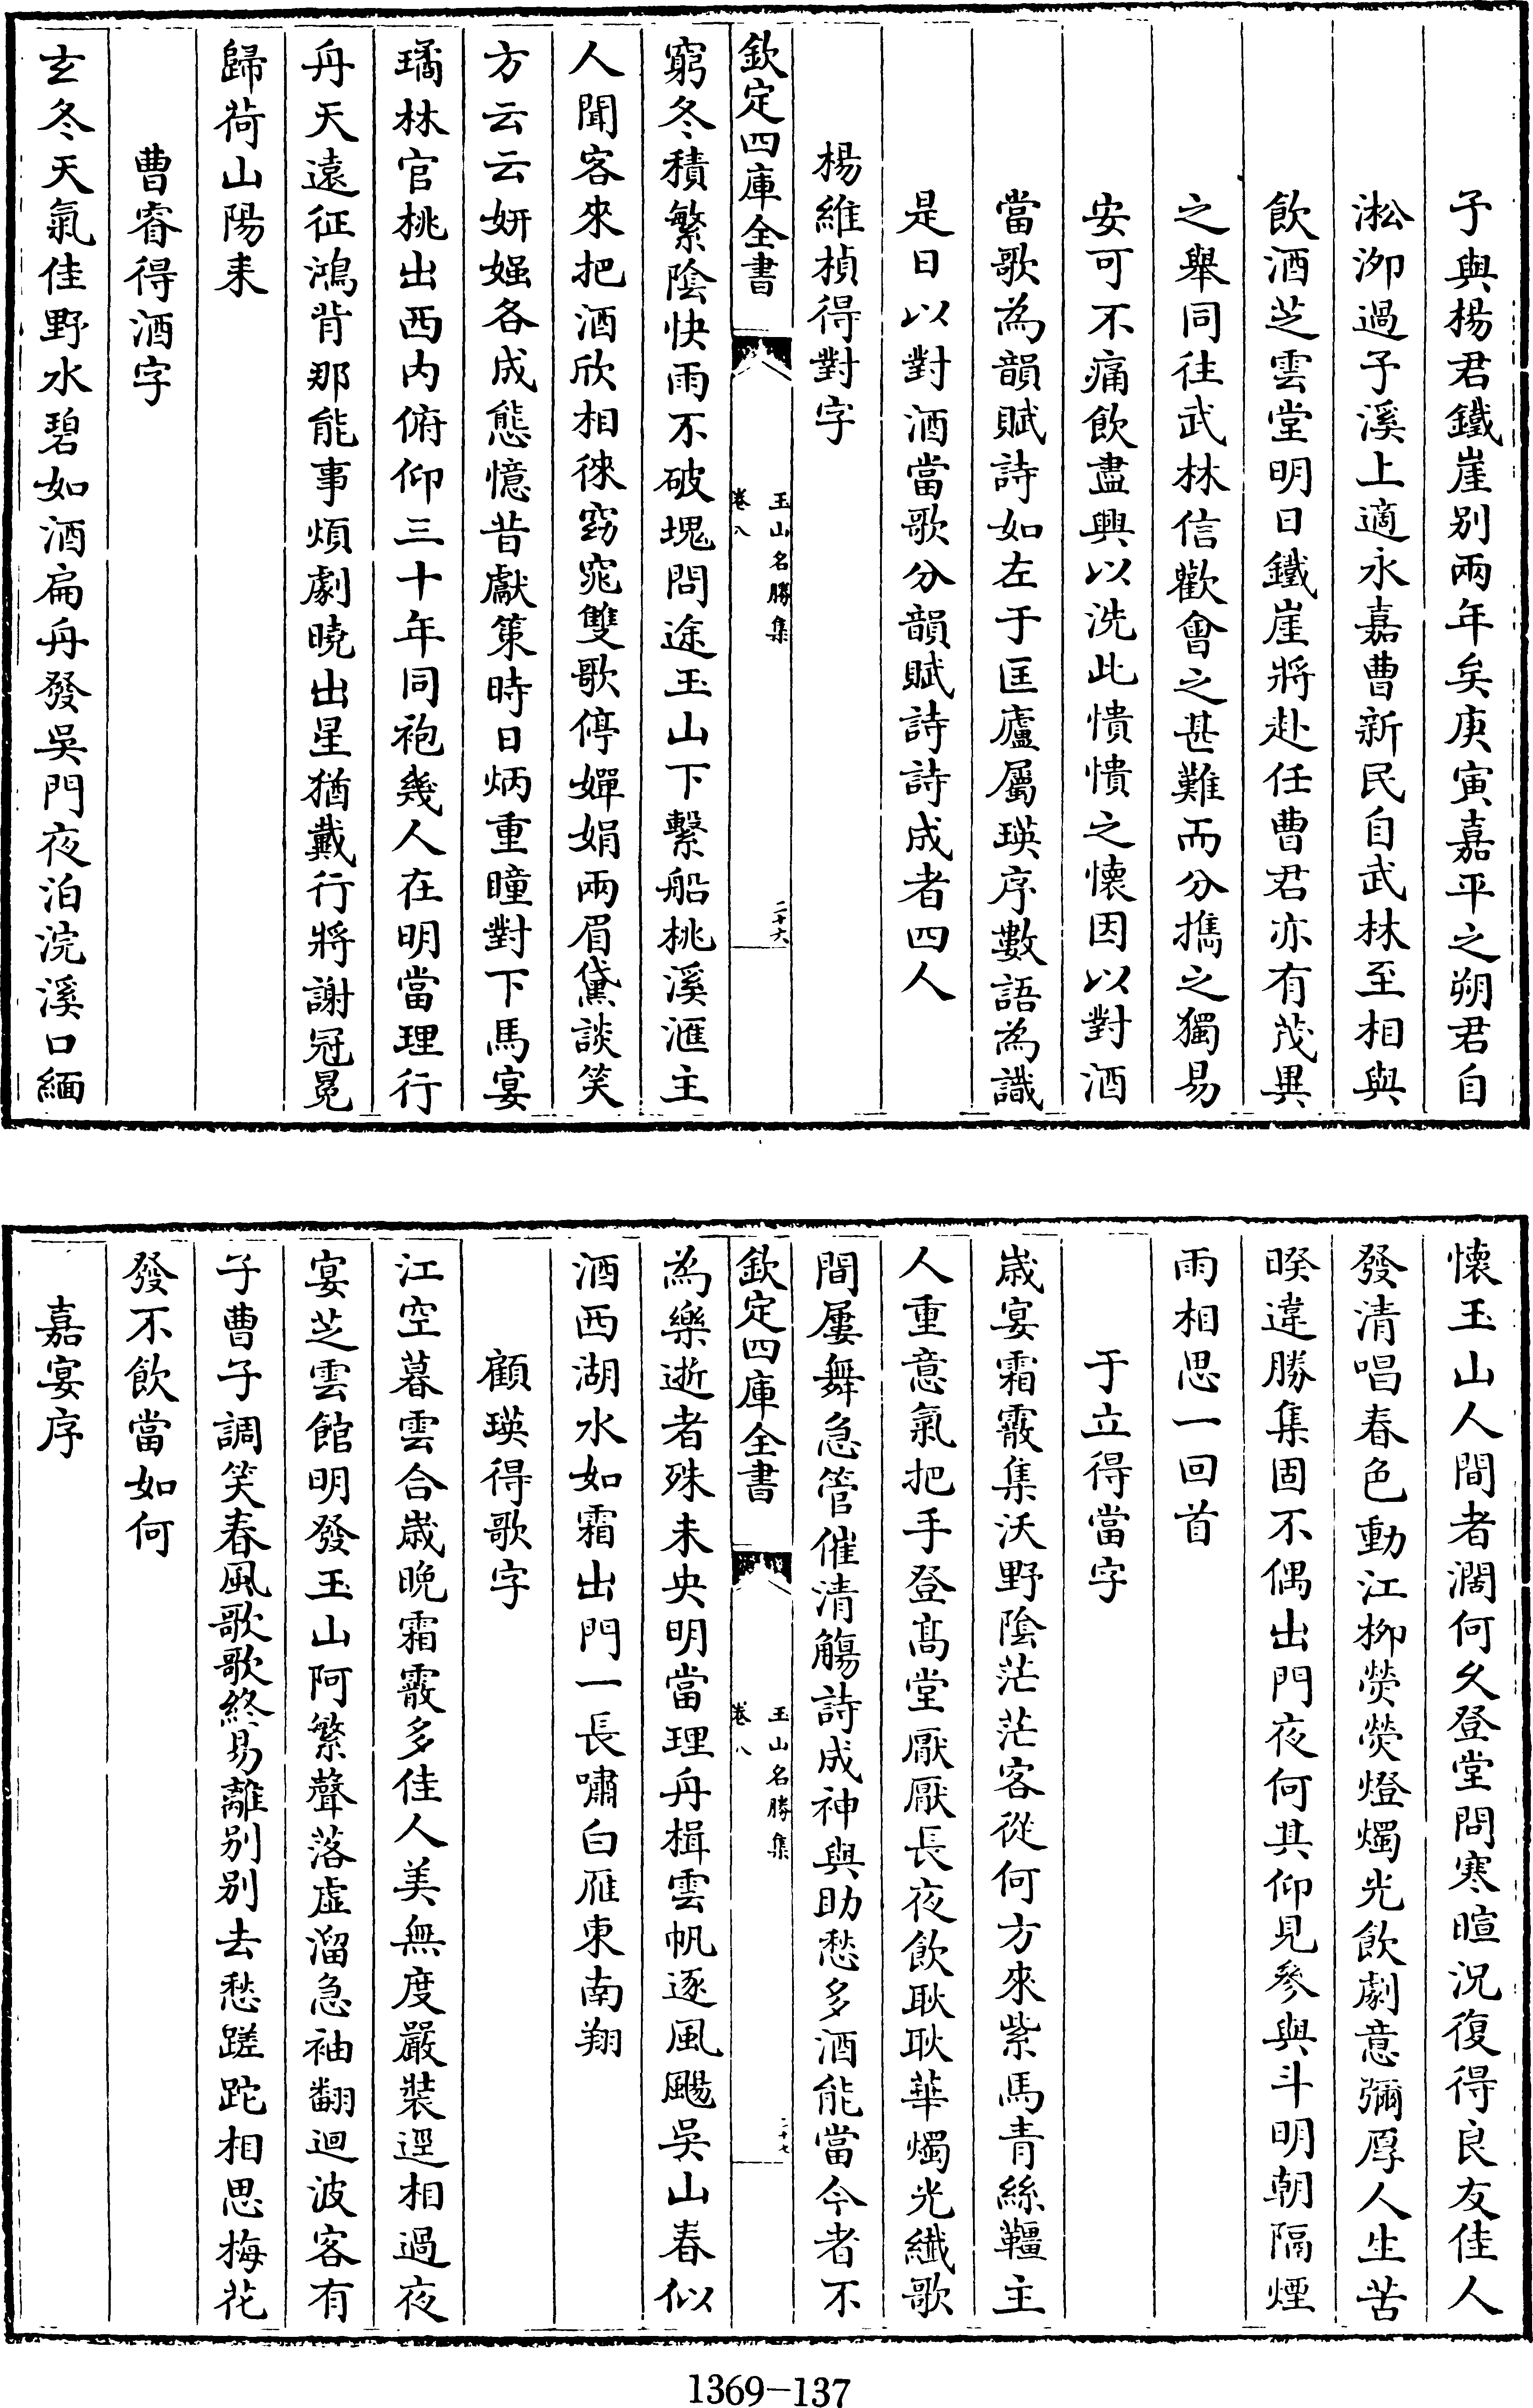 子與楊君鐵崖别兩年矣庚寅嘉平之朔君自
淞泖過予溪上適永嘉曹新民自武林至相與
飲酒芝雲堂明日鐵崖將赴任曹君亦有茂異
之舉同往武林信歡會之甚難而分擕之獨易
安可不痛飲盡興以洗此憒憒之懐因以對酒
當歌為韻賦詩如左于匡廬屬瑛序數語為識
是日以對酒當歌分韻賦詩詩成者四人
楊維楨得對字
欽定四庫全書
玉山名勝集
卷八
二十六
窮冬積繁陰快雨不破塊問途玉山下繫船桃溪滙主
人聞客來把酒欣相徠窈窕雙歌停嬋娟兩眉黛談笑
方云云妍媸各成態憶昔獻策時日炳重瞳對下馬宴
璚林官桃出西内俯仰三十年同袍幾人在明當理行
舟天遠征鴻背那能事煩劇曉出星猶戴行將謝冠冕
歸荷山陽耒
曹睿得酒字
玄冬天氣佳野水碧如酒扁舟發吳門夜泊浣溪口緬
懐玉山人間者濶何久登堂問寒暄況復得良友佳人
發清唱春色動江柳熒熒燈燭光飲劇意彌厚人生苦
暌違勝集固不偶出門夜何其仰見參與斗明朝隔煙
雨相思一回首
于立得當字
歲宴霜霰集沃野陰茫茫客從何方來紫馬青絲韁主
人重意氣把手登髙堂厭厭長夜飲耿耿華燭光纖歌
間屢舞急管催清觴詩成神與助愁多酒能當今者不
欽定四庫全書
玉山名勝集
卷八
二十七
為樂逝者殊未央明當理舟楫雲帆逐風颺吳山春似
酒西湖水如霜出門一長嘯白雁東南翔
顧瑛得歌字
江空暮雲合歲晚霜霰多佳人美無度嚴裝逕相過夜
宴芝雲館明發玉山阿繁聲落虛溜急袖翻迴波客有
子曹子調笑春風歌歌終易離别别去愁蹉跎相思梅花
發不飲當如何
嘉宴序
1369-137